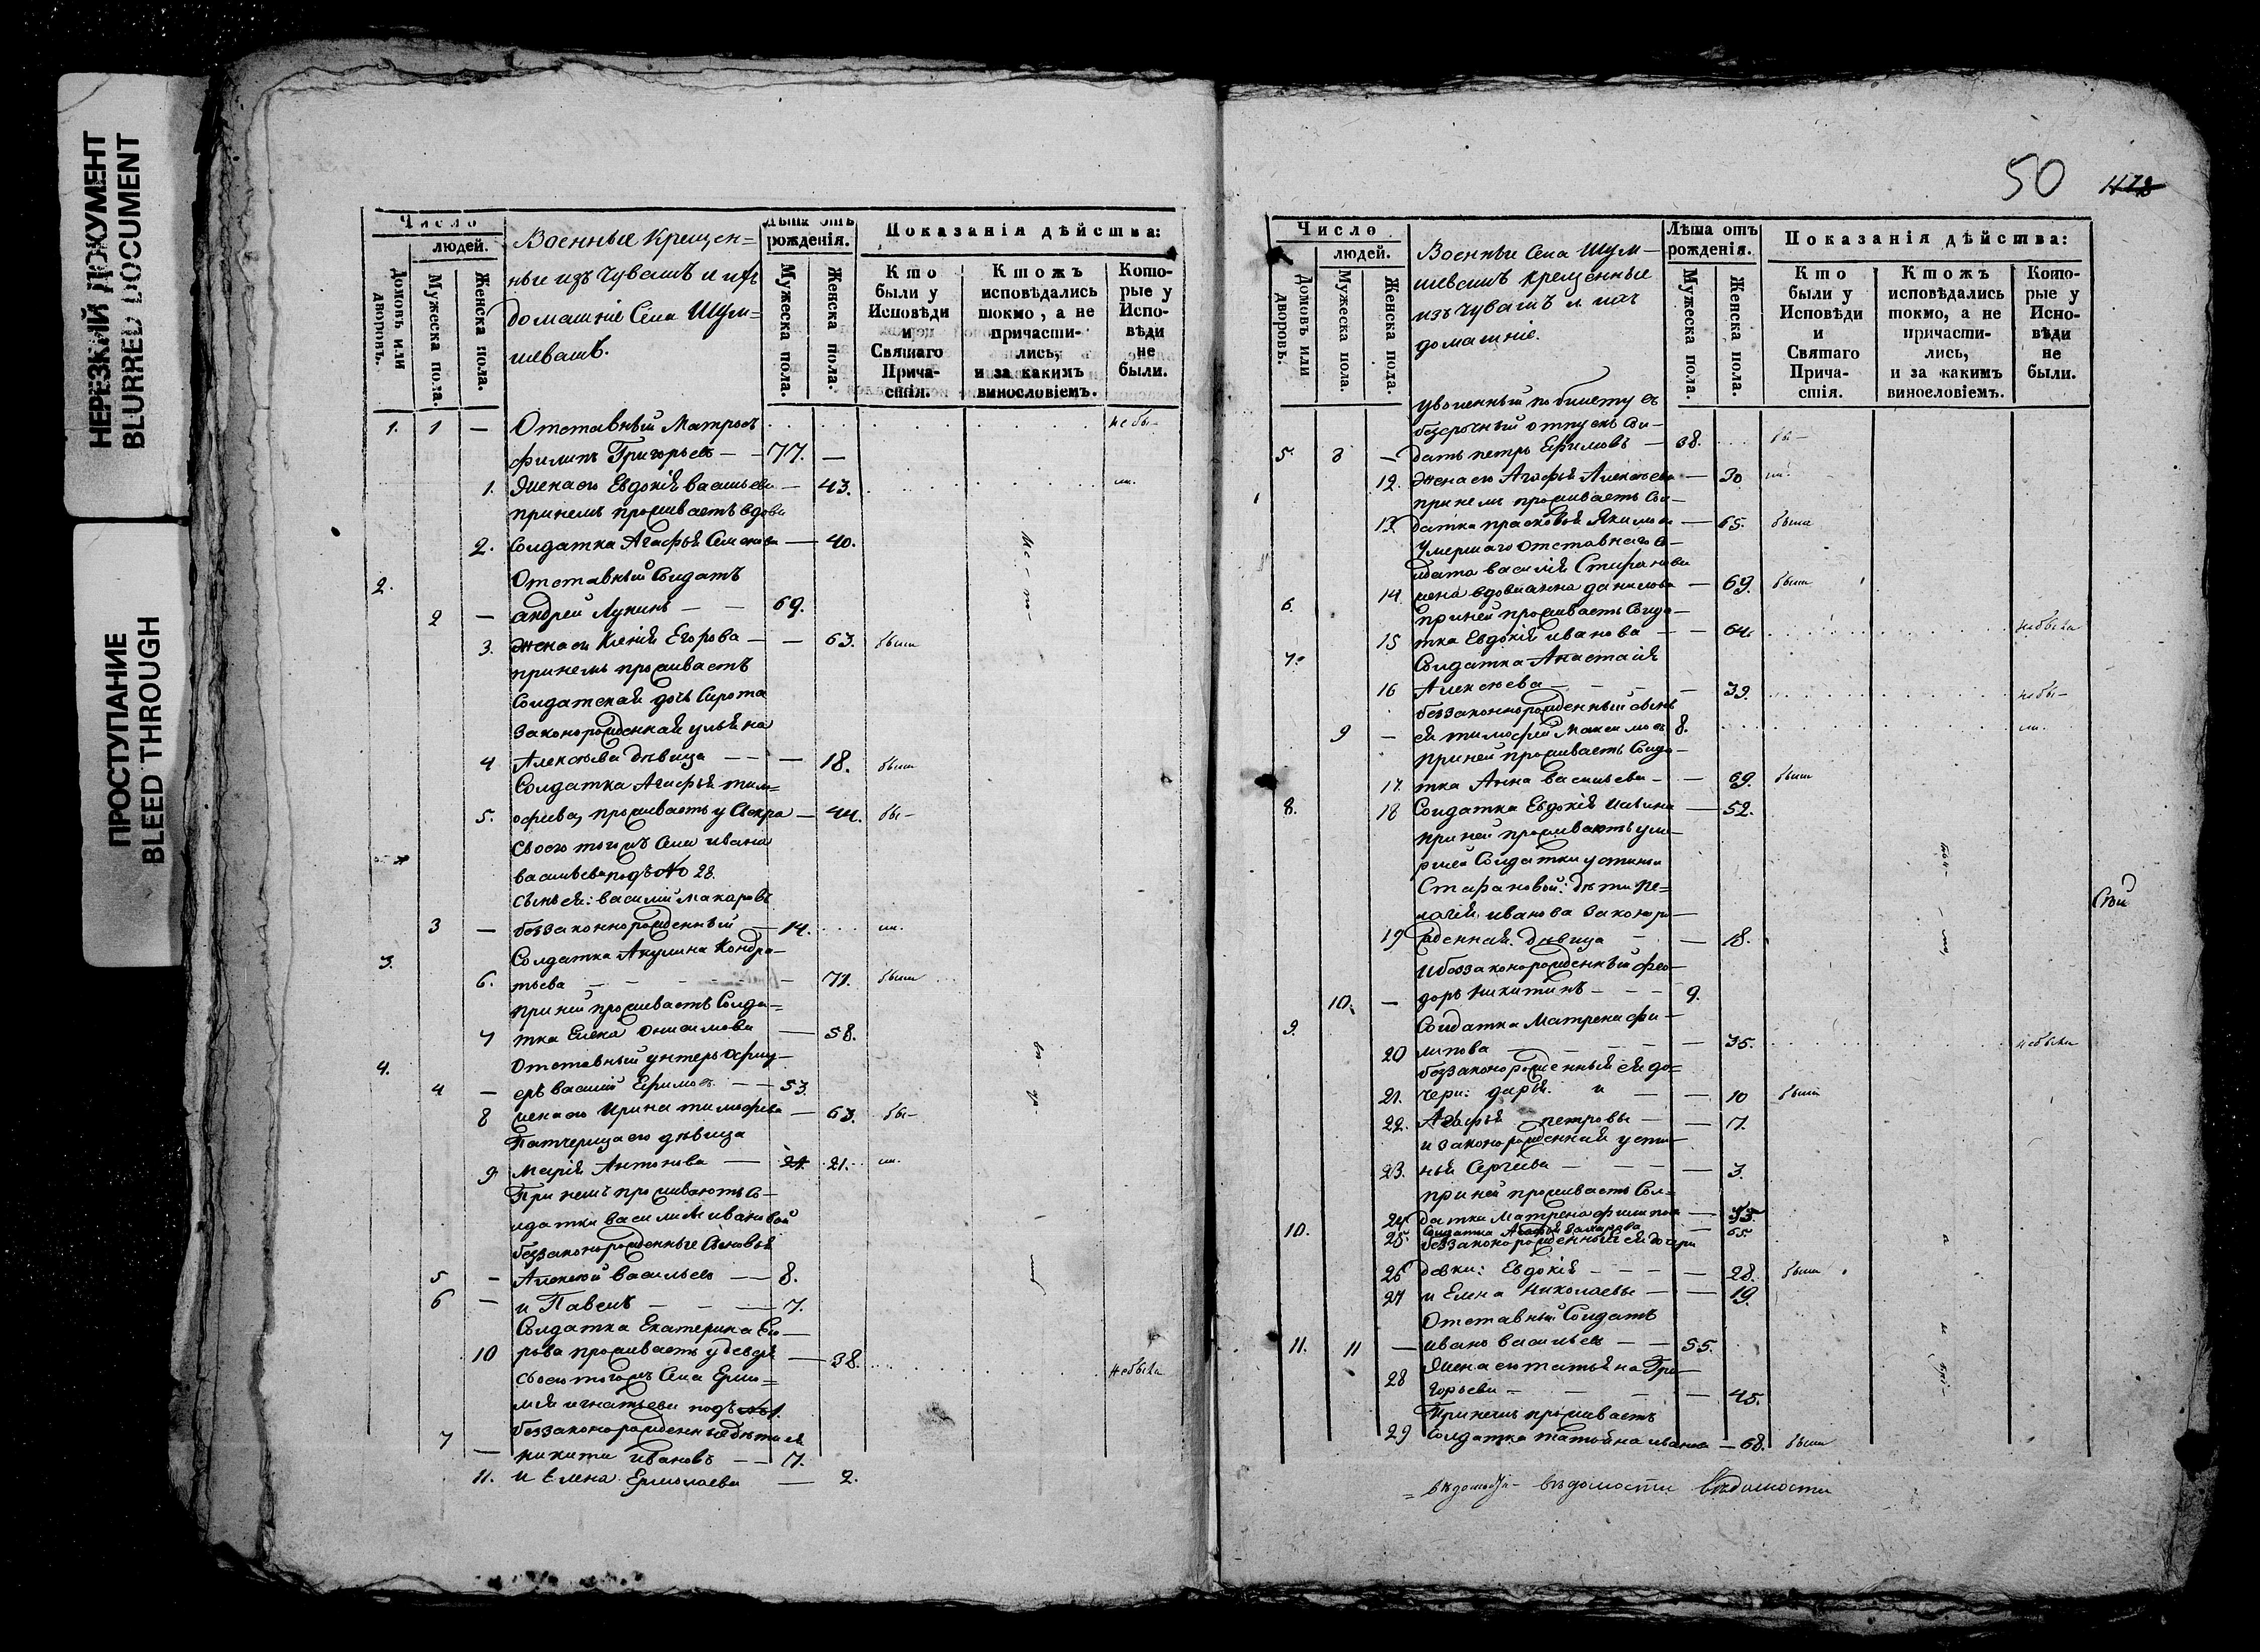 НЕРЕЗКИЙ ДОКУМЕНТ
BLURRED DOCUMENT
ПРОСТУПАНИЕ
BLEED THROUGH
Число
людей.
Домовъ или дворовъ.
Мужеска пола.
Женска пола.
Военные Крещен=
ные изъ Чувашъ и ихъ
домашніе Села Шум=
шевашъ.
Лѣта отъ
рожденія.
Мужеска пола.
Женска пола.
Показанія дѣйства:
Кто
были у
Исповѣди
и
Святаго
Прича-
стія.
Ктожъ
исповѣдались
токмо, а не
причасти-
лись,
и за какимъ
винословіемъ.
Кото-
рые у
Испо-
вѣди
не
были.
1. 1 — Отставный Матросъ не бы-
Филипъ Григорьевъ — 77. —
1. Жена его Евдокія Васильева — 43.
при немъ проживаетъ вдова
2. Солдатка Агафья Семенова — 40.
2. Отставный Солдатъ
2 — Андрей Лукинъ — 69.
3. Жена его Ксенія Егорова — 63. были
при немъ проживаетъ
Солдатская дочь Сирота
Законорожденная ульяна
4 Алексѣева дѣвица — 18. была
Солдатка Агафья тим=
5. офѣева, проживаетъ у Свекра — 44. бы-
своего тогожъ Села ивана
васильева подъ № 28.
Сынъ ея: василій макаровъ
3 — беззаконнорожденный — 14.
3. Солдатка Акулина Кондра-
6. тьева — 71. была
при ней проживаетъ Солда=
7 тка Елена Онисимова — 58.
4. Отставный унтеръ Офиц-
4 — еръ василій Ефимовъ — 53.
8 жена его Ирина тимофѣева — 63. бы-
Патчерица его дѣвица
9 Марія Антонова — 21. 21.
При немъ проживаютъ Со-
лдатки василисы ивановой
беззаконорожденные Сыновья
5 — Алексѣй васильевъ — 8.
6 — и Павелъ — 7.
Солдатка Екатерина Его-
10 рова проживаетъ у дѣдя — 38. не была
своего тогожъ Села Ермо=
лая игнатьева подъ №1.
беззаконорожденные дѣти ея
7 — никита ивановъ — 7.
11. и Елена Ермолаева — 2.
50
Число
людей.
Домовъ или дворовъ.
Мужеска пола.
Женска пола.
Военные Села Шум-
шевашъ крещенные
изъ Чувашъ и ихъ
домашніе.
Лѣта отъ
рожденія.
Мужеска пола.
Женска пола.
Показанія дѣйства:
Кто
были у
Исповѣди
и
Святаго
Прича-
стія.
Ктожъ
исповѣдались
токмо, а не
причасти-
лись,
и за какимъ
винословіемъ.
Кото-
рые у
Испо-
вѣди
не
были.
уволенный по билету въ
безсрочный отпускъ Сол-
5 8 — датъ петръ Ефимовъ — 38. бы-
12. Жена его Агафья Алексѣева — 30
при немъ проживаетъ Сол-
13. датка прасковья Якимова — 65. была
Умершаго отставнаго Со-
лдата василія Стефанова
14. жена вдова анна данилова — 69. была
6. При ней проживаетъ Солда-
15 тка Евдокія иванова — 64. не была
7. Солдатка Анастасія
16 Алексѣева — 39. не бы-
беззаконнорожденный сынъ
9 — ея тимофей Максимовъ 8.
при ней проживаетъ Солда-
17. тка Анна васильева — 69. была
8. 18 Солдатка Евдокія Ильина — 52.
при ней проживаютъ уме-
ршей Солдатки устиньи
Стефановой: дѣти Пе=
лагія иванова законоро-
19 жденная дѣвица — 18.
И беззаконорожденный фео-
10. — доръ никитинъ — 9.
9. Солдатка Матрена фи-
20 липова — 35. не была
беззаконорожденныя ея до=
21. чери: дарья и — 10 были
22. Агафья петровы — 7.
и законорожденная усти-
23. нья Сергѣева — 3.
при ней проживаетъ Сол=
24. датка Матрена филипова — 53.
10. 25. Солдатка Агафья захарова — 65
беззаконорожденныя ея дочери
26 девки: Евдокія — 28. были
27 и Елена Николаевы — 19.
Отставный Солдатъ
11. 11 — иванъ васильевъ — 55.
28 Жена его татьяна Гри-
горьева — 45.
При немъ проживаетъ
29 Солдатка татьяна иванова — 68. была
вѣдомости вѣдомости